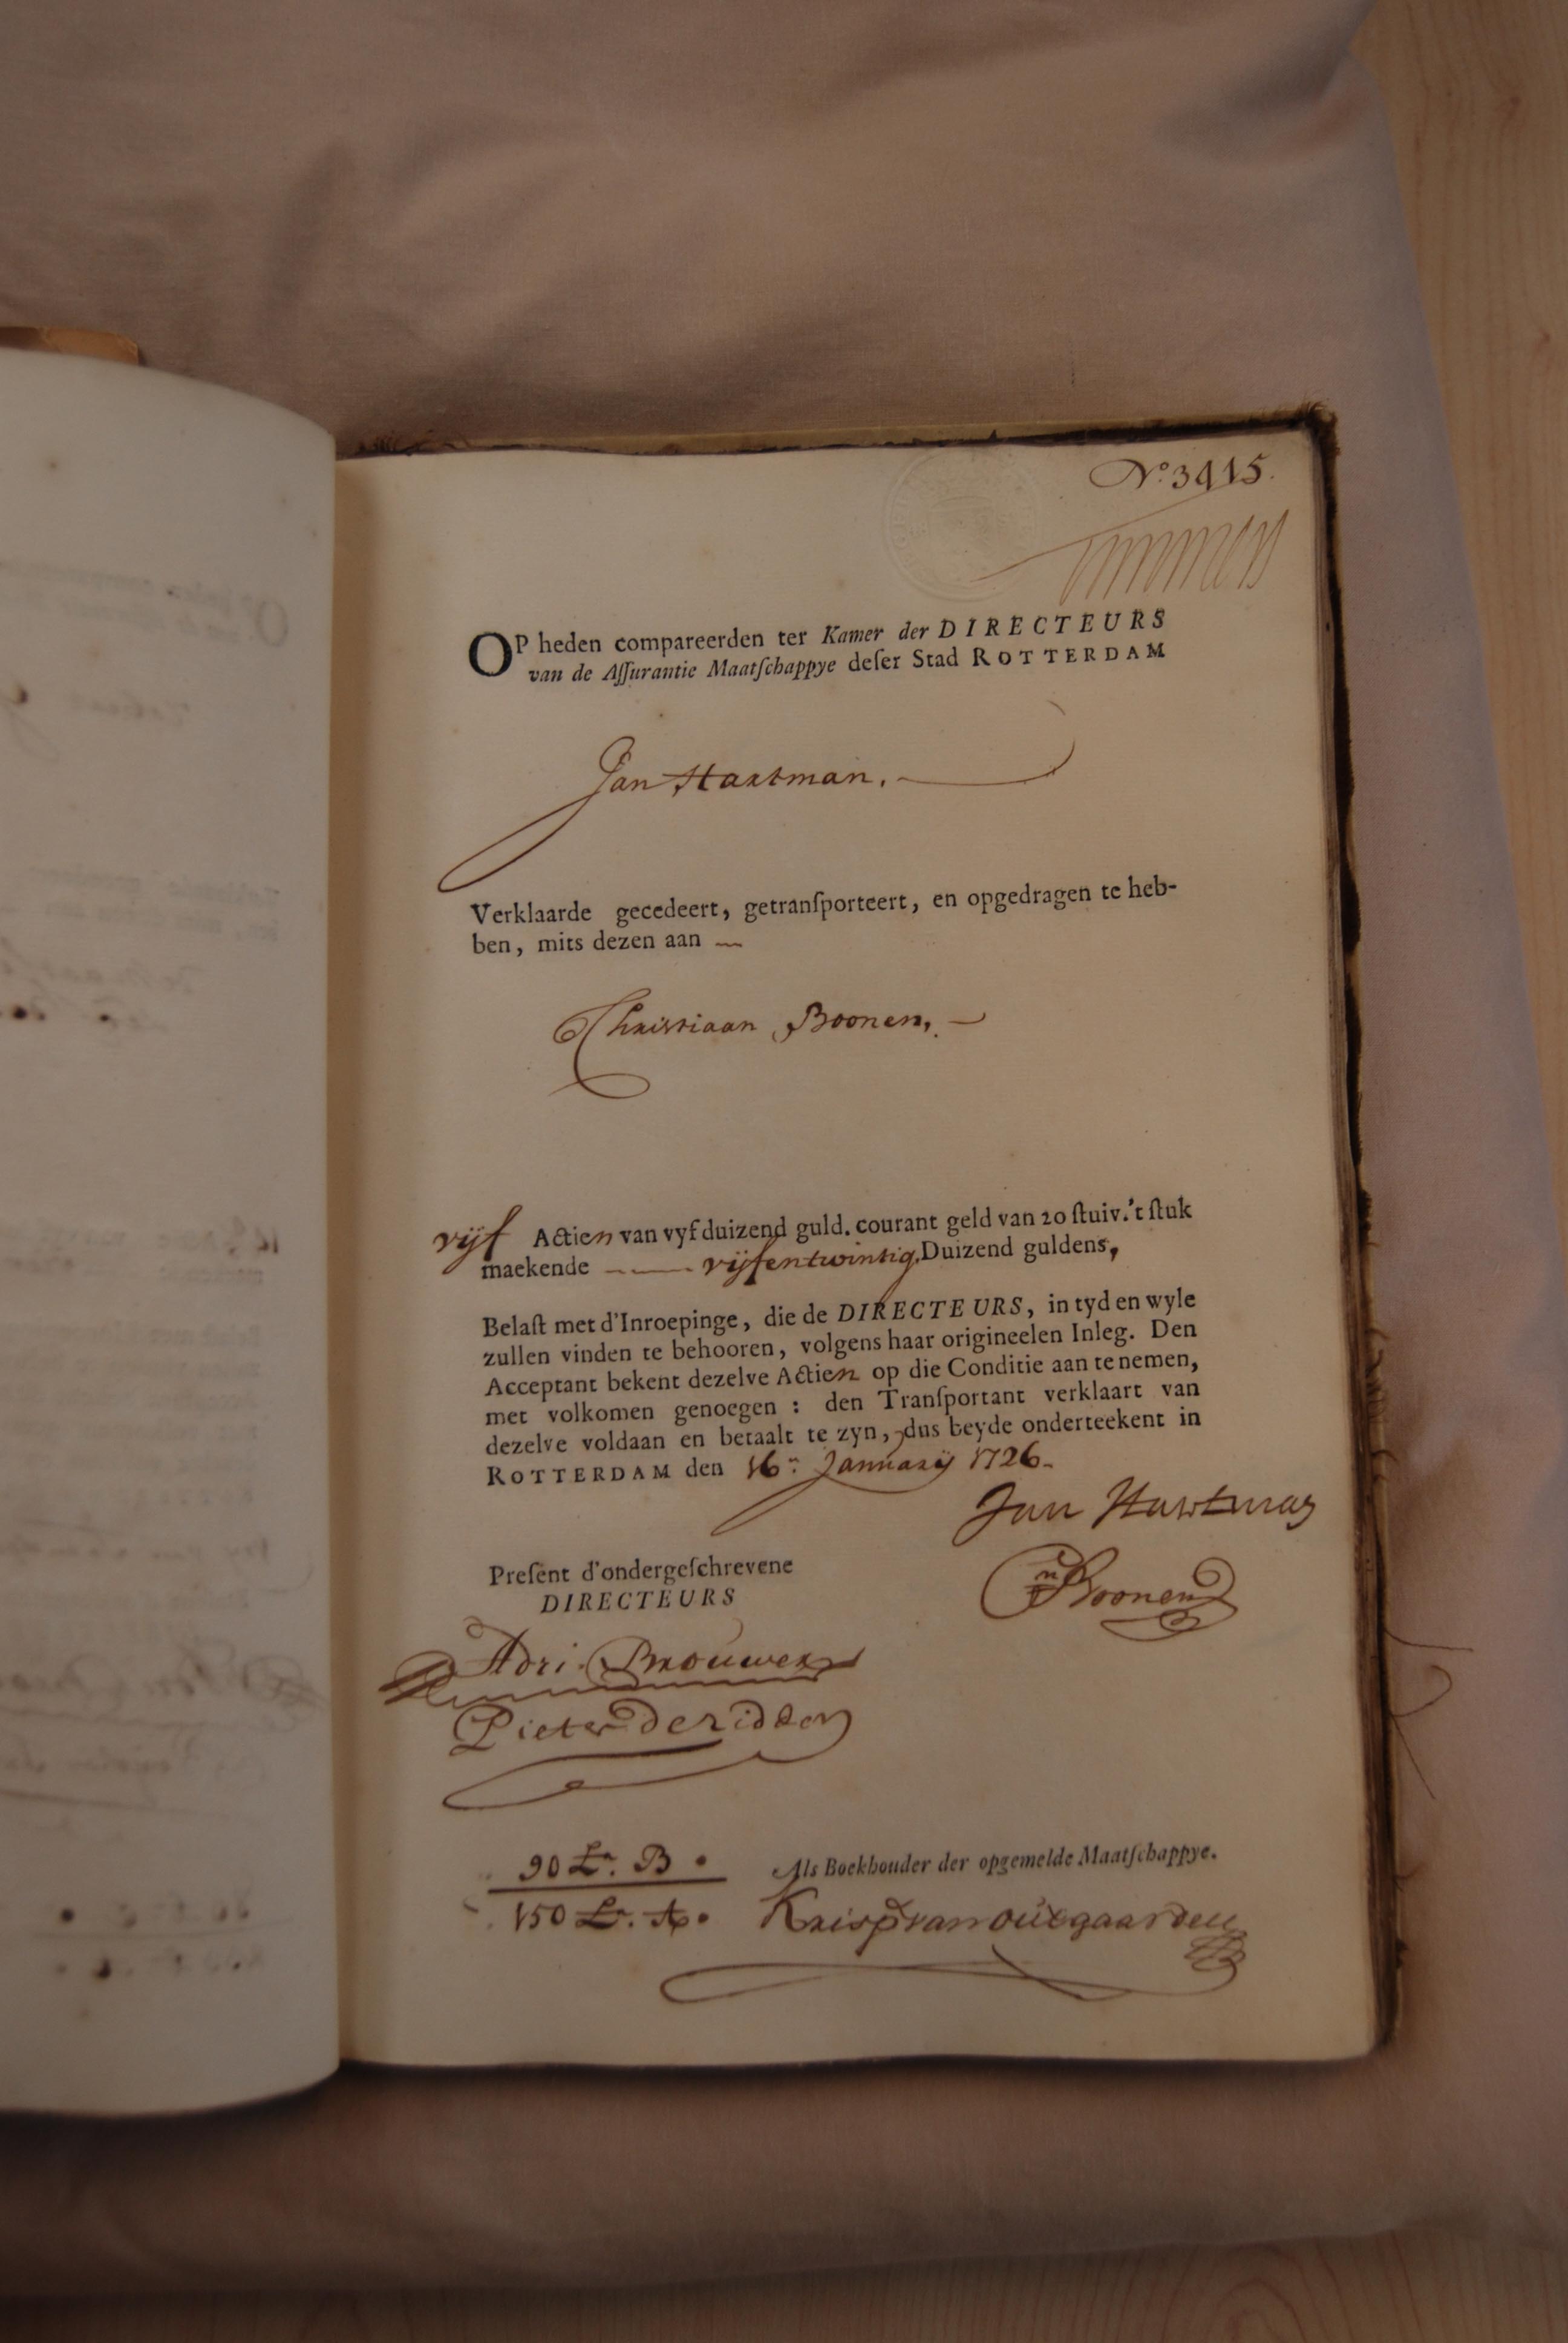 No. 3415.
OP heden compareerden ter Kamer der DIRECTEURS
van de Aſſurantie Maatſchappye deſer Stad ROTTERDAM
Jan Hartman.
Verklaarde gecedeert, getranſporteert, en opgedragen te heb-
ben, mits dezen aan
Christiaan Boonen,
vijf Actien van vyf duizend guld. courant geld van 20 ſtuiv. 't ſtuk
maekende vijfentwintig Duizend guldens,
Belaſt met d'Inroepinge, die de DIRECTEURS, in tyd en wyle
zullen vinden te behooren, volgens haar origineelen Inleg. Den
Acceptant bekent dezelve Actien op die Conditie aan te nemen,
met volkomen genoegen : den Tranſportant verklaart van
dezelve voldaan en betaalt te zyn, dus beyde onderteekent in
ROTTERDAM den 16n: Januarij 1726
Jan Hartman
Boonen
Preſent d'ondergeſchrevene
DIRECTEURS
Adri. Brouwer
Pieter de ridder
90 Lr. B
150 Lr. A
Als Boekhouder der opgemelde Maatſchappye.